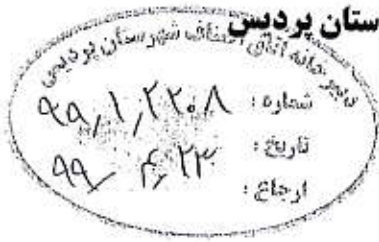 ستان پردیس
دبیرخانه اتاق اصناف شهرستان پردیس
شماره : ۹۹٫۱٫۲۲۰۸
تاریخ : ۹۹٫ ۴٫ ۲۳
ارجاع :